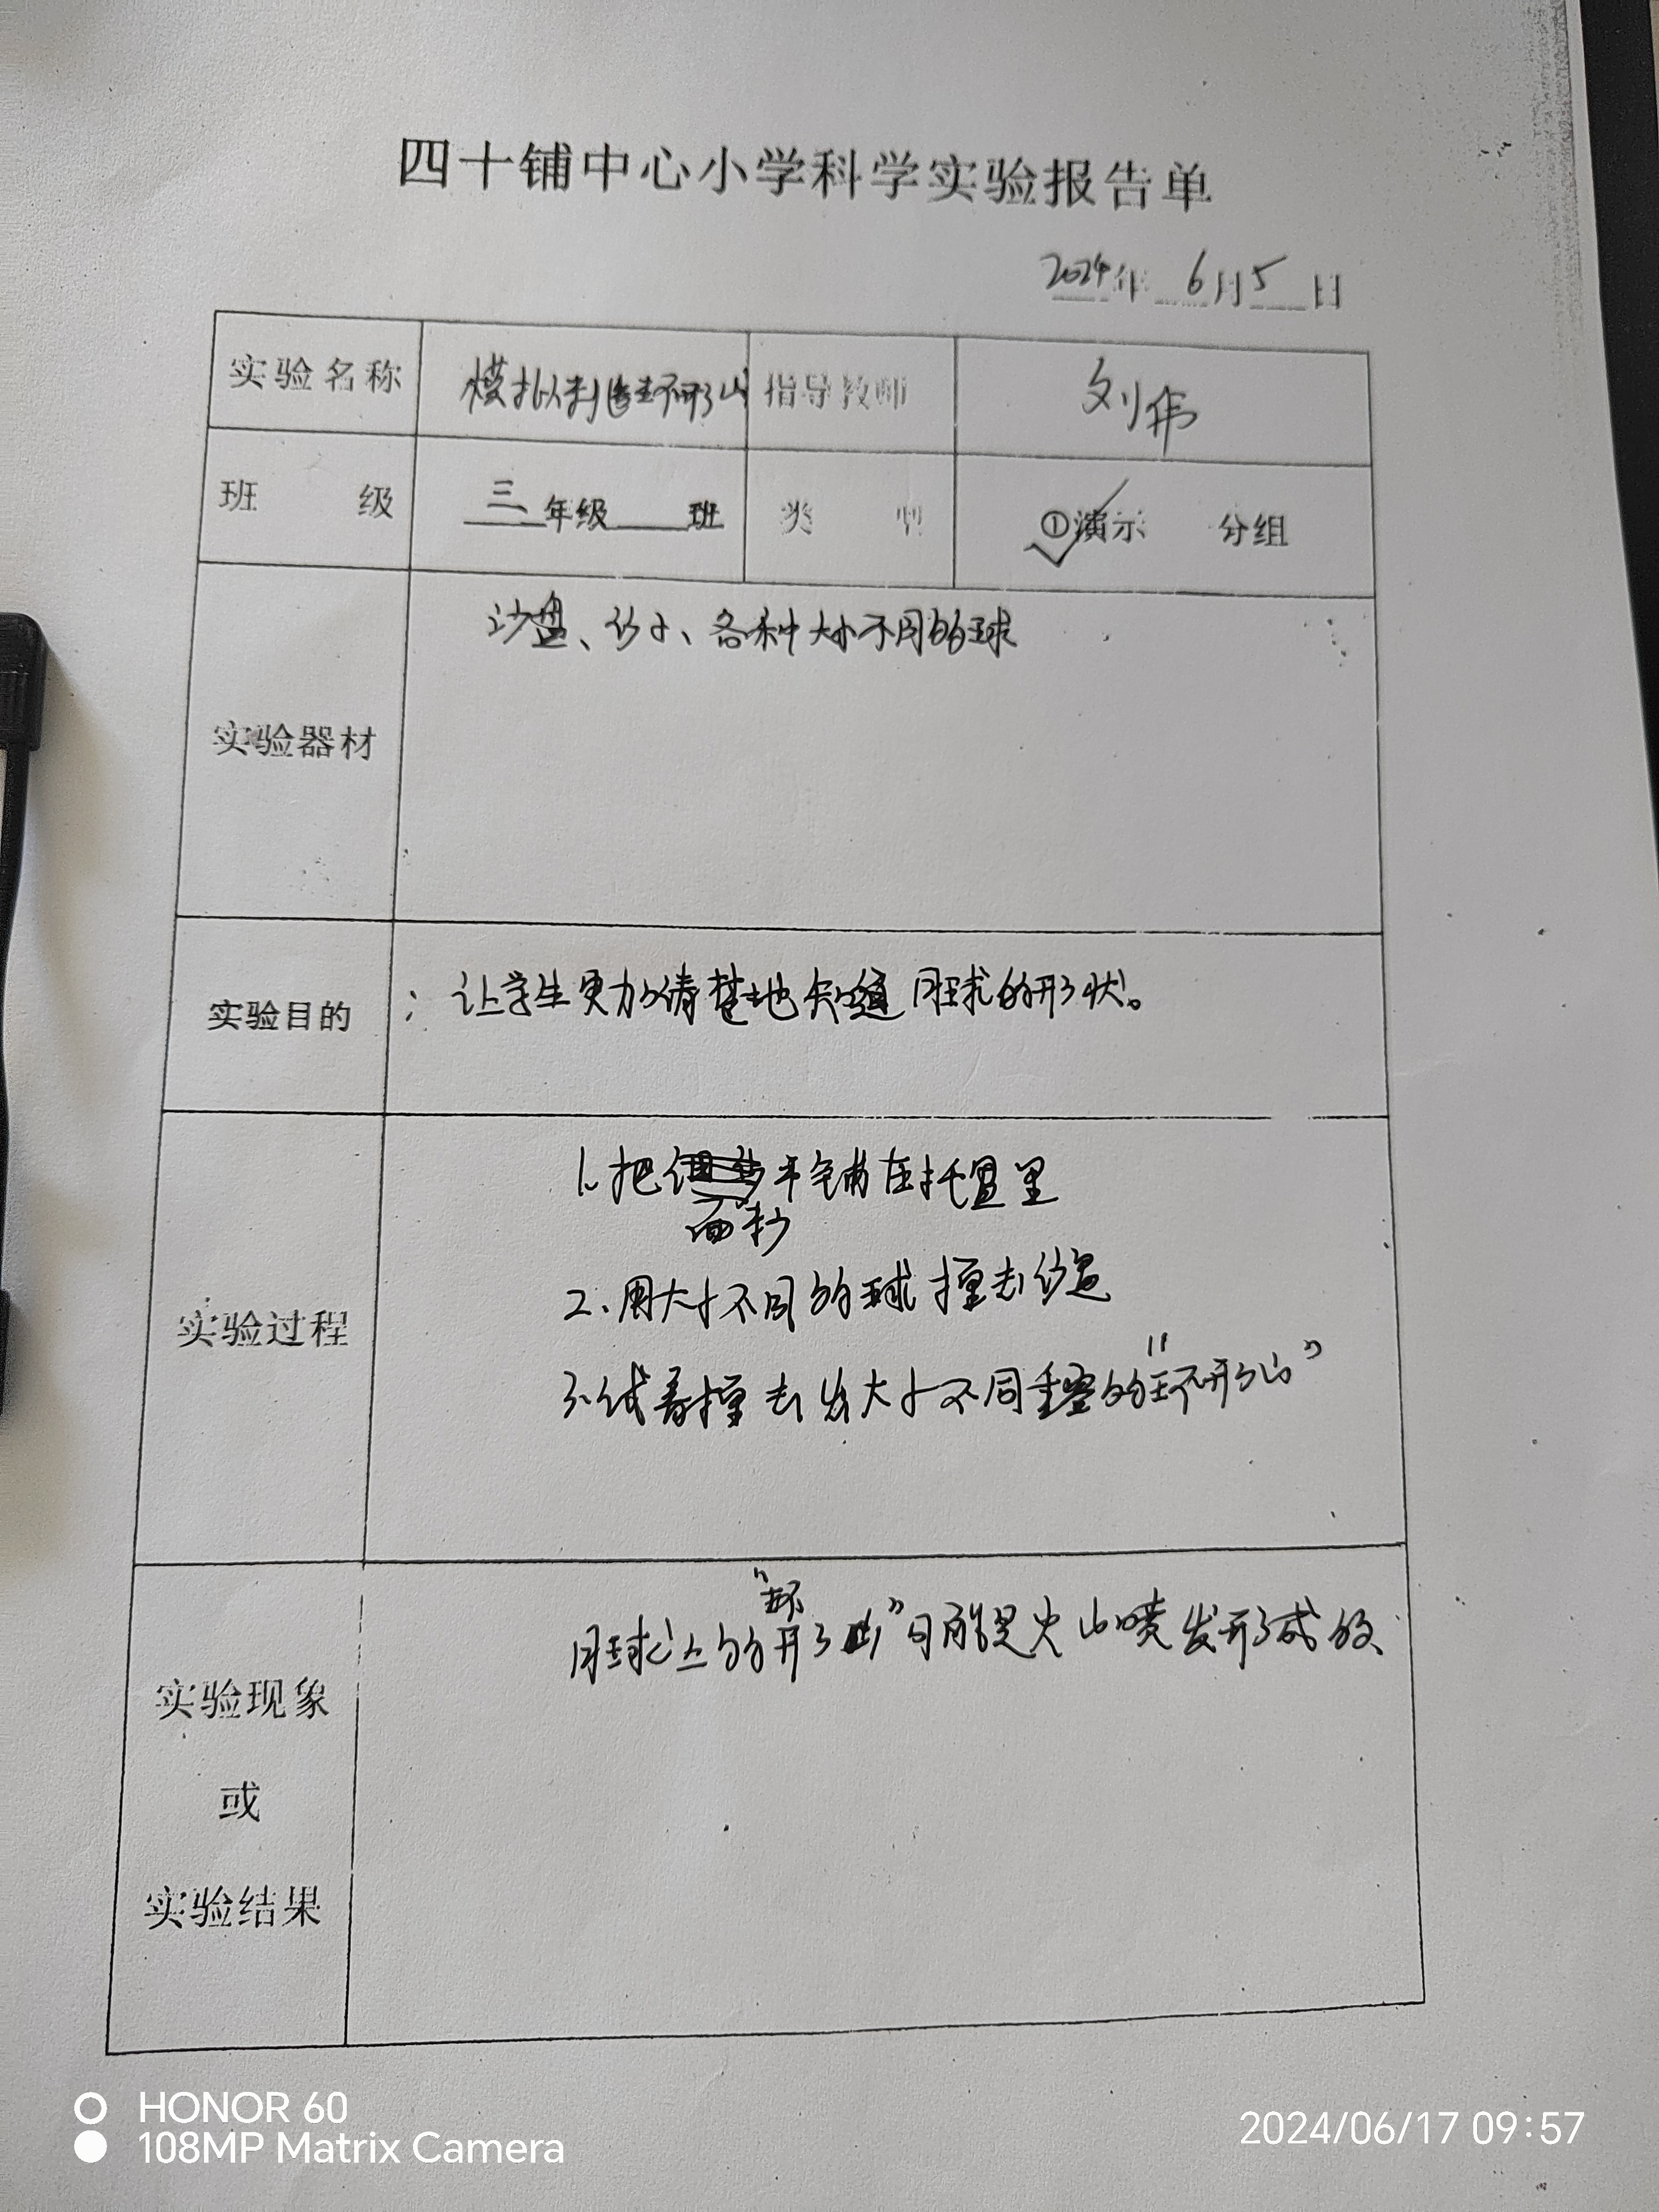 四十铺中心小学科学实验报告单
2024年 6月5日
实验名称 模拟制造环形山 指导教师 刘伟
班 级 三年级 班 类 型 ①演示 分组
沙盘、沙子、各种大小不同的球
实验器材
实验目的 : 让学生更加清楚地知道月球的形状。
1.把 平铺在托盘里
面
2.用大小不同的球撞击沙盘
实验过程
3.试着撞击出大小不同 的"环形山"
"环
月球上的形山"可能是火山喷发形成的
实验现象
或
实验结果
HONOR 60
108MP Matrix Camera
2024/06/17 09:57